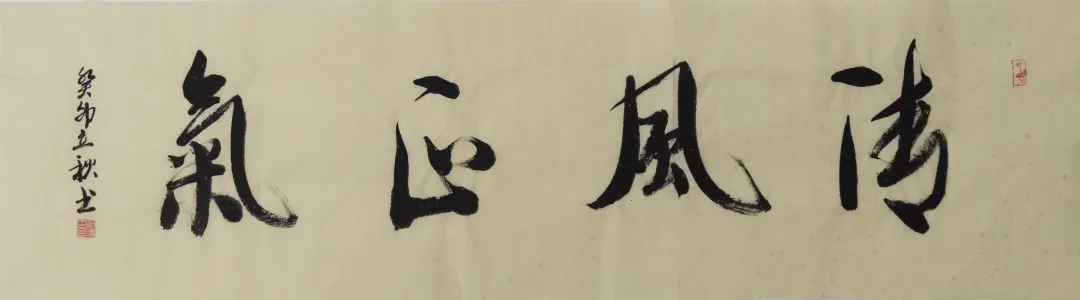 清風正氣
癸卯立秋书